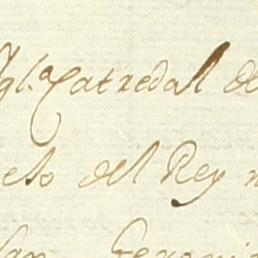 Ygl.ª Catredal de
elo del Rey n
San Geroni